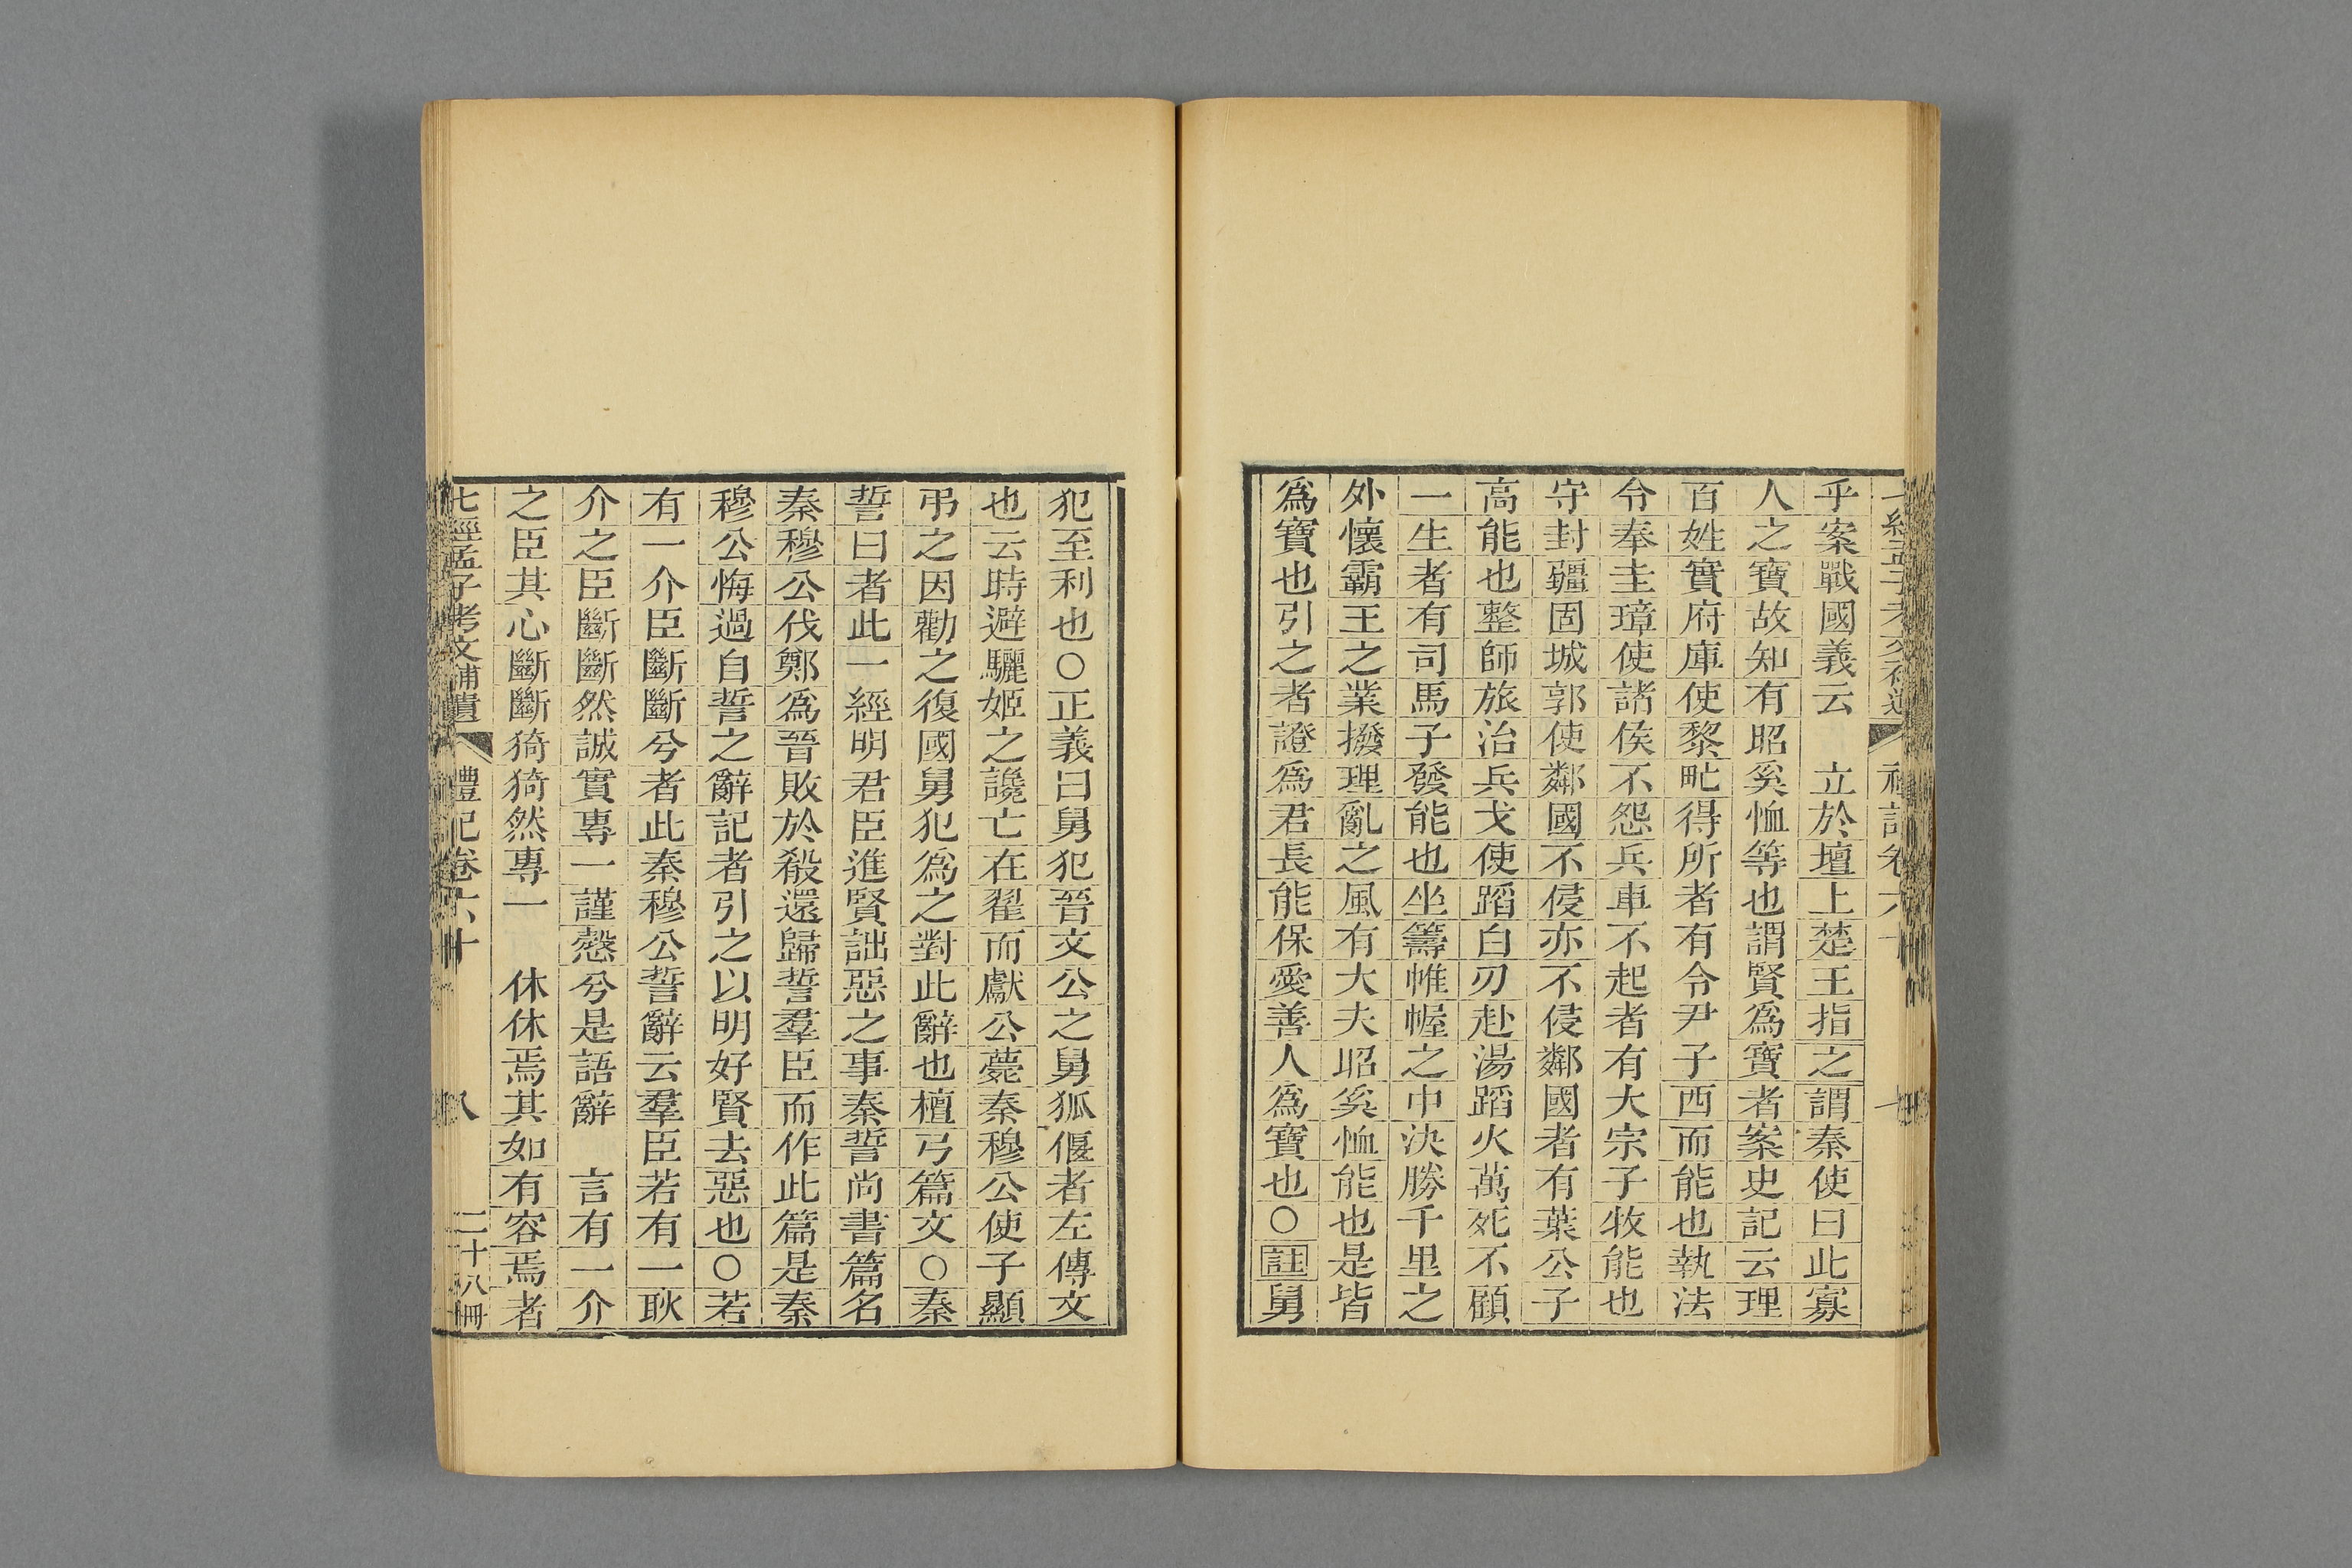 乎案戰國義云　立於壇上楚王指之謂秦使曰此寡
人之寶故知有昭奚恤等也謂賢爲寶者案史記云理
百姓實府庫使黎甿得所者有令尹子西而能也執法
令奉圭璋使諸侯不怨兵車不起者有大宗子牧能也
守封疆固城郭使鄰國不侵亦不侵鄰國者有葉公子
高能也整師旅治兵戈使蹈白刃赴湯蹈火萬死不顧
一生者有司馬子發能也坐籌帷幄之中決勝千里之
外懷霸王之業撥理亂之風有大夫昭奚恤能也是皆
爲寶也引之者證爲君長能保愛善人爲寶也○註舅
犯至利也○正義曰舅犯晉文公之舅狐偃者左傳文
也云時避驪姬之讒亡在翟而獻公薨秦穆公使子顯
弔之因勸之復國舅犯爲之對此辭也檀弓篇文○秦
誓曰者此一經明君臣進賢詘惡之事秦誓尚書篇名
秦穆公伐鄭爲晉敗於殽還歸誓羣臣而作此篇是秦
穆公悔過自誓之辭記者引之以明好賢去惡也○若
有一介臣斷斷兮者此秦穆公誓辭云羣臣若有一耿
介之臣斷斷然誠實專一謹慤兮是語辭　言有一介
之臣其心斷斷猗猗然專一　休休焉其如有容焉者
七經孟子考文補遺　禮記卷六十　八　二十八冊